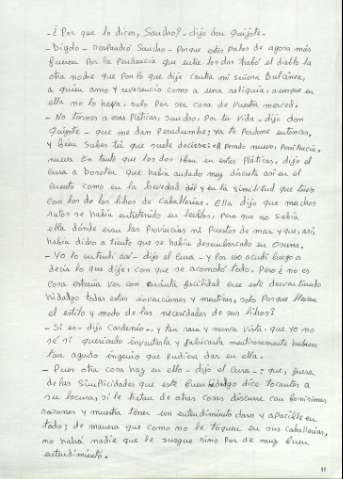 - ¿Por que lo dices, Sancho? - dijo don Quijote.
- Dígolo - respondió Sancho - porque estos palos de agora más
fueron por la pendencia que entre los dos trabó el diablo la
otra noche que por lo que dije contra mi señora Dulcinea,
a quien amo y reverencio como a una reliquia, aunque en
ella no lo haya, solo por ser cosa de vuestra merced.
- No tornes a esas pláticas, Sancho, por tu vida - dijo don
Quijote - que me dan pesadumbre; ya te perdoné entonces,
y bien sabes tú que suele decirse: a pecado nuevo, penitencia
nueva. En tanto que los dos iban en estas pláticas, dijo el
cura a Dorotea que había andado muy discreta así en el
cuento como en la brevedad dél y en la similitud que tuvo
con los de los libros de caballerías. Ella dijo que muchos
ratos se había entretenido en leellos, pero que no sabía
ella dónde eran las provincias ni puertos de mar y que, así
había dicho a tiento que se había desembarcado en Osuna.
- Yo lo entendí así - dijo el cura - y por eso acudí luego a
decir lo que dije, con que se acomodó todo. Pero ¿no es
cosa extraña ver con cuánta facilidad cree este desventurado
hidalgo todas estas invenciones y mentiras, solo porque llevan
el estilo y modo de las necedades de sus libros?
- Sí es - dijo Cardenio - y tan rara y nunca vista, que yo no
sé si queriendo inventarla y fabricarla mentirosamente hubiera
tan agudo ingenio que pudiera dar en ella.
- Pues otra cosa hay en ello - dijo el cura - : que, fuera
de las simplicidades que este buen hidalgo dice tocantes a
su locura, si le tratan de otras cosas discurre con bonísimas
razones y muestra tener un entendimiento claro y apacible en
todo; de manera que como no le toquen en sus caballerías,
no habrá nadie que le juzgue sino por de muy buen
entendimiento.
11